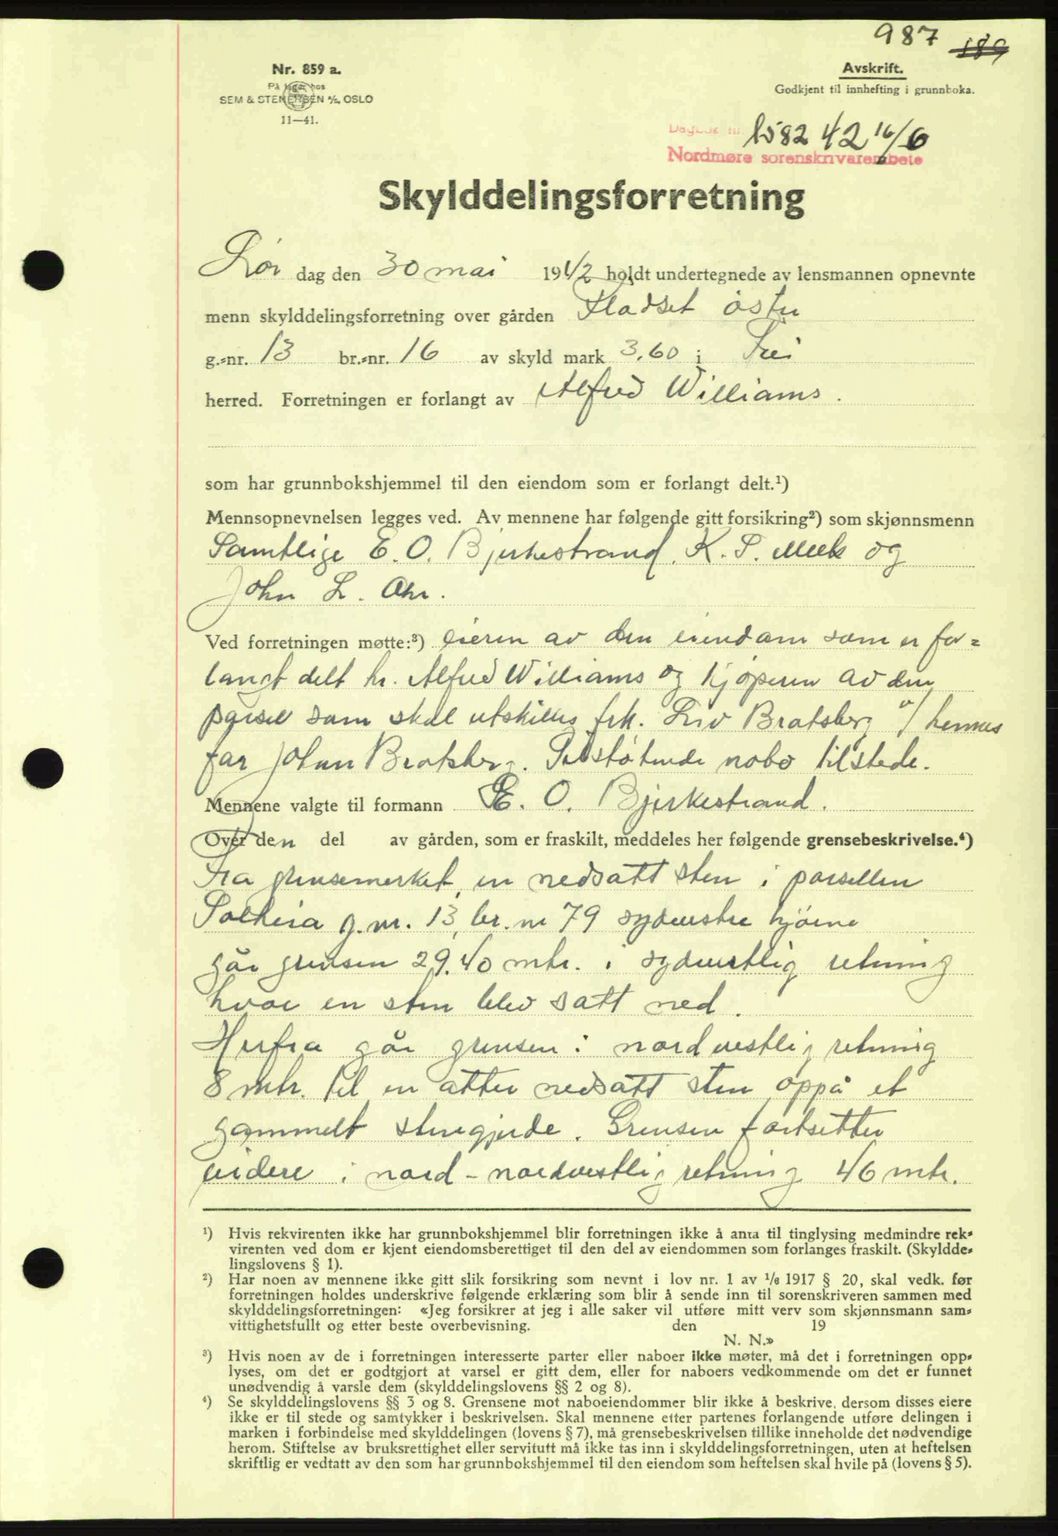 987 189
Nr. 859 a.
På lager hos
SEM & STENERSEN A/S, OSLO
11—41.
Avskrift.
Godkjent til innhefting i grunnboka.
Dagbok nr 1582 42 16/6
Nordmøre sorenskrivarembete
Skylddelingsforretning
Lør dag den 30 mai 1942 holdt undertegnede av lensmannen opnevnte
menn skylddelingsforretning over gården Fladset østre
g.-nr. 13 br.-nr. 16 av skyld mark 3.60 i Frei
herred. Forretningen er forlangt av Alfred Williams.
som har grunnbokshjemmel til den eiendom som er forlangt delt.¹)
Mennsopnevnelsen legges ved. Av mennene har følgende gitt forsikring²) som skjønnsmenn
Samtlige E. O. Bjerkestrand, K. P. Meek og
John L. Ohr.
Ved forretningen møtte:³) eieren av den eiendom som er for=
langt delt hr. Alfred Williams og kjøperen av den
parsell som skal utskilles frk. Liv Bratsberg v/ hennes
far Johan Bratsberg. Tilstøtende nabo tilstede.
Mennene valgte til formann E. O. Bjerkestrand.
Over den del av gården, som er fraskilt, meddeles her følgende grensebeskrivelse.⁴)
Fra grensemerket, en nedsatt sten i parsellen
Solheia g.nr. 13, br. nr 79 sydvestre hjørne
går grensen 29.40 mtr. i sydvestlig retning
hvor en sten blev satt ned.
Herfra går grensen i nordvestlig retning
8 mtr. til en atter nedsatt sten oppå et
gammelt stengjerde. Grensen fortsetter
videre i nord-nordvestlig retning 46 mtr.
¹) Hvis rekvirenten ikke har grunnbokshjemmel blir forretningen ikke å anta til tinglysing medmindre rek-
virenten ved dom er kjent eiendomsberettiget til den del av eiendommen som forlanges fraskilt. (Skyldde-
lingslovens § 1).
²) Har noen av mennene ikke gitt slik forsikring som nevnt i lov nr. 1 av 1/6 1917 § 20, skal vedk. før
forretningen holdes underskrive følgende erklæring som blir å sende inn til sorenskriveren sammen med
skylddelingsforretningen: «Jeg forsikrer at jeg i alle saker vil utføre mitt verv som skjønnsmann sam-
vittighetsfullt og etter beste overbevisning. den 19
N. N.»
³) Hvis noen av de i forretningen interesserte parter eller naboer ikke møter, må det i forretningen opp-
lyses, om det er godtgjort at varsel er gitt dem, eller for naboers vedkommende om det er funnet
unødvendig å varsle dem (skylddelingslovens §§ 2 og 8).
⁴) Se skylddelingslovens §§ 3 og 8. Grensene mot naboeiendommer blir ikke å beskrive, dersom disses eiere
ikke er til stede og samtykker i beskrivelsen. Skal mennene etter partenes forlangende utføre delingen i
marken i forbindelse med skylddelingen (lovens § 7), må grensebeskrivelsen tillike inneholde det nødvendige
herom. Stiftelse av bruksrettighet eller servitutt må ikke tas inn i skylddelingsforretningen, uten at heftelsen
skriftlig er vedtatt av den som har grunnbokshjemmel til den eiendom som heftelsen skal hvile på (lovens § 5).